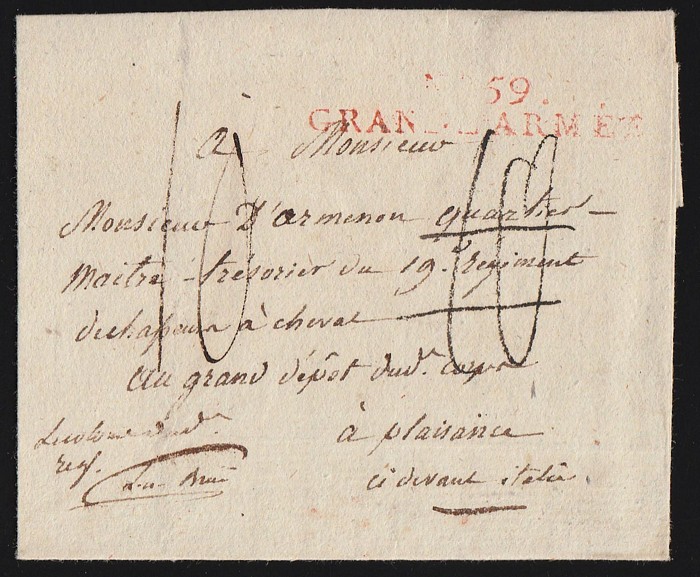 N° 59.
GRANDE ARMÉE
à Monsieur
Monsieur D'armenon quartier-
maitre-trésorier du 19.e régiment
de chasseurs à cheval
au grand dépôt dud.t corps
à plaisance
ci devant italie
Le colonel dud.t
reg.
10
10